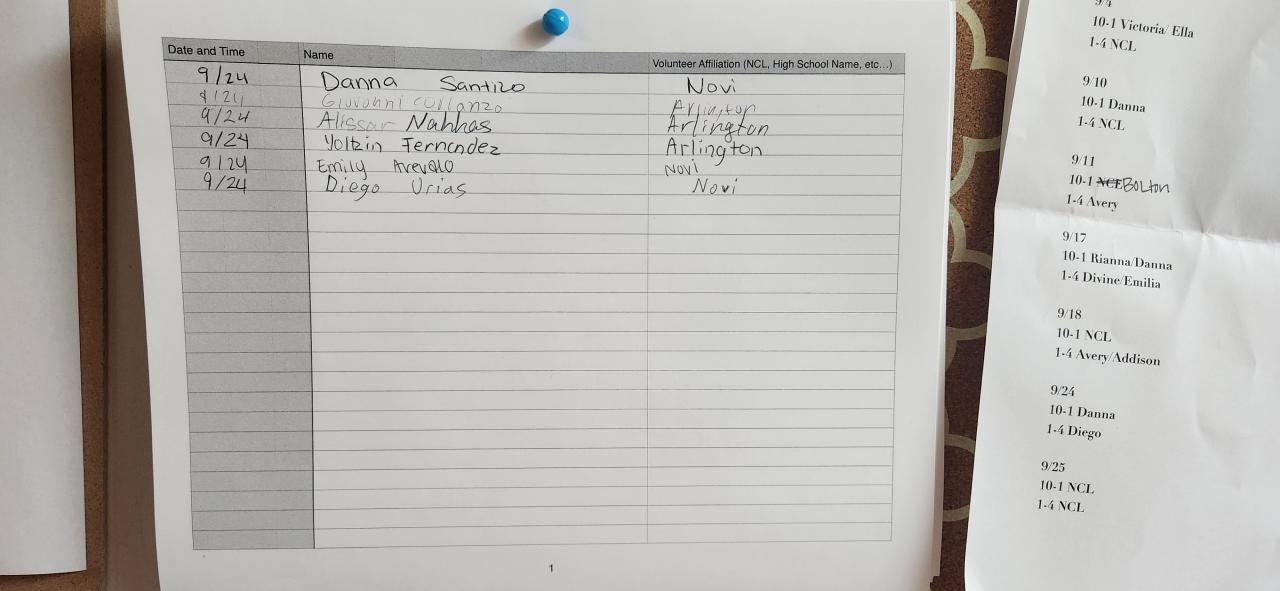 Date and Time Name Volunteer Affiliation (NCL, High School Name, etc...)
9/24 Danna Santizo Novi
Arlington
9/24 Alissar Nahhas Arlington
9/24 Yoltzin Fernandez Arlington
9/24 Emily Arevalo Novi
9/24 Diego Urias Novi
1
9/4
10-1 Victoria/ Ella
1-4 NCL
9/10
10-1 Danna
1-4 NCL
9/11
10-1 NCL Bolton
1-4 Avery
9/17
10-1 Rianna/Danna
1-4 Divine/Emilia
9/18
10-1 NCL
1-4 Avery/Addison
9/24
10-1 Danna
1-4 Diego
9/25
10-1 NCL
1-4 NCL